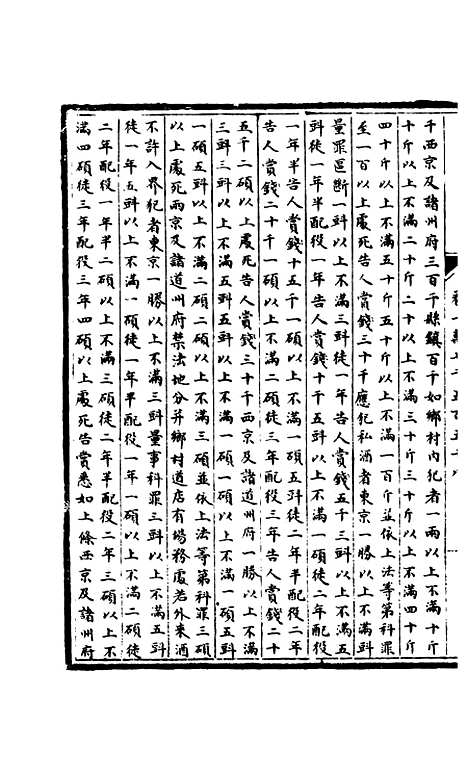 千西京及諸州府三百千縣鎮百千如鄉村內犯者一兩以上不滿十斤
十斤以上不滿二十斤二十以上不滿三十斤三十斤以上不滿四十斤
四十斤以上不滿五十斤五十斤以上不滿一百斤並依上法等第科罪
至一百以上處死告人賞錢三十千應犯私酒者東京一勝以上不滿㪷
量罪區斷一㪷以上不滿三㪷徒一年告人賞錢五千三㪷以上不滿五
㪷徒一年半配役一年告人賞錢十千五㪷以上不滿一碩徒二年配役
一年半告人賞錢十五千一碩以上不滿一碩五㪷徒二年半配役二年
告人賞錢二十千一碩以上不滿二碩徒三年配役三年告人賞錢二十
五千二碩以上處死告人賞錢三十千西京及諸道州府一勝以上不滿
三㪷三㪷以上不滿五㪷五㪷以上不滿一碩一碩以上不滿一碩五㪷
一碩五㪷以上不滿二碩二碩以上不滿三碩並依上法等第科罪三碩
以上處死兩京及諸道州府禁法地分并鄉村道店有場務處若外來酒
不許入界犯者東京一勝以上不滿三㪷量事科罪三㪷以上不滿五㪷
徒一年五㪷以上不滿一碩徒一年半配役一年一碩以上不滿二碩徒
二年配役一年半二碩以上不滿三碩徒二年半配役二年三碩以上不
滿四碩徒三年配役三年四碩以上處死告賞悉如上條西京及諸州府